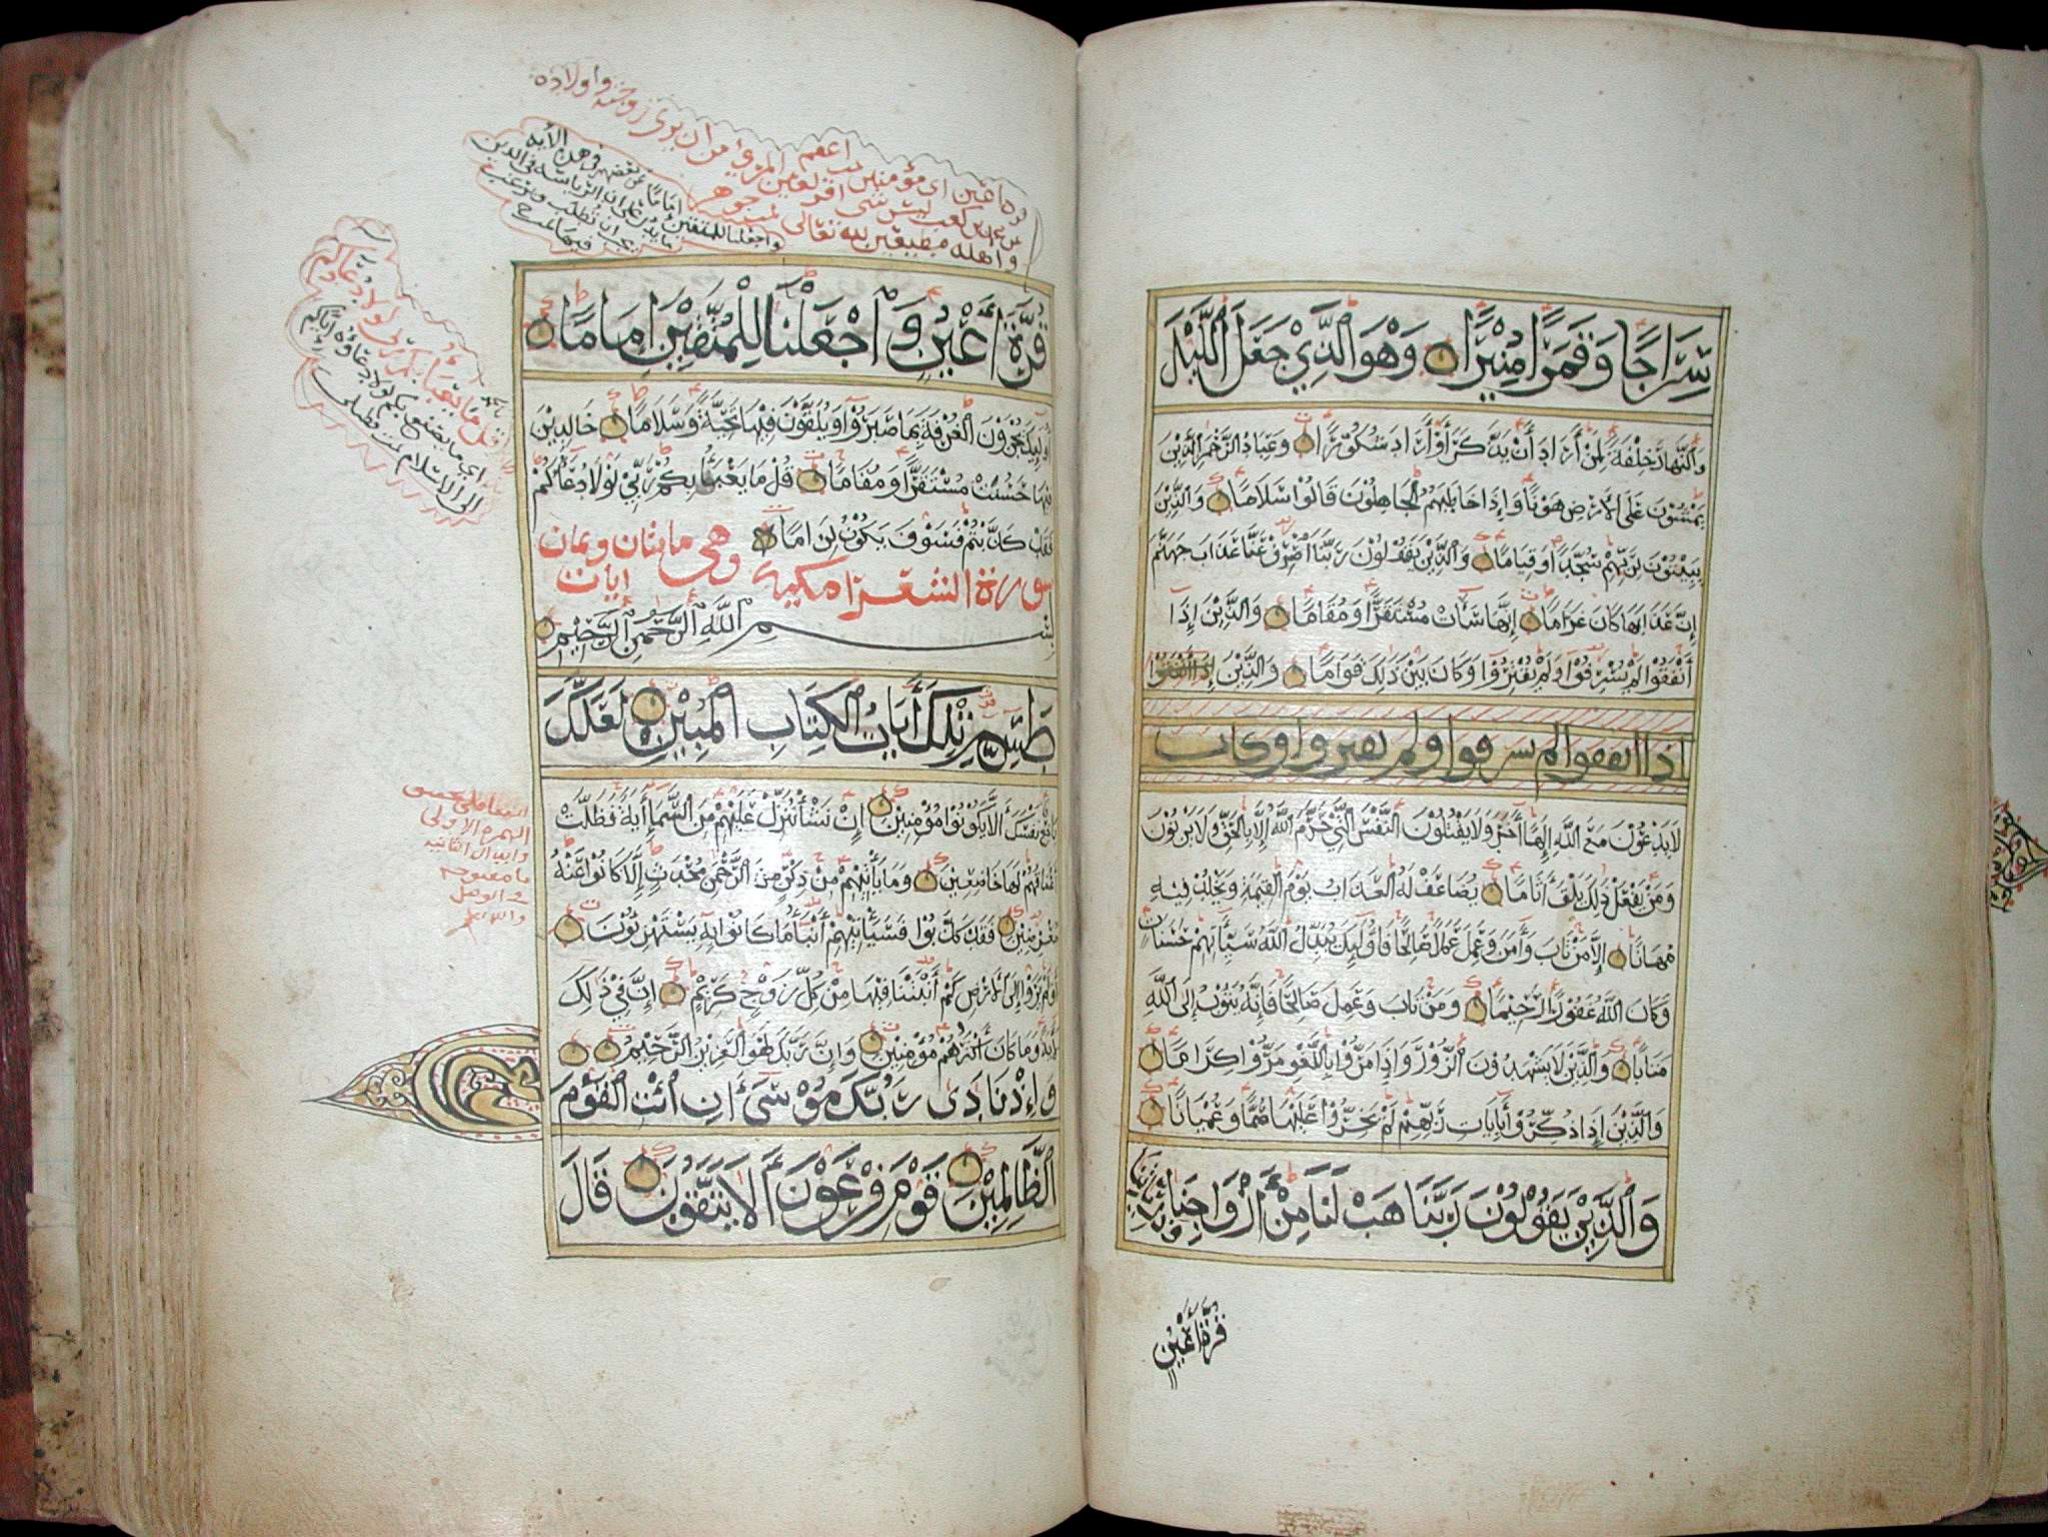 سِرَاجًا وَقَمَرًا مُنِيْرًا وَهْوَ الَّذِيْ جَعَلَ اللَّيْلَ
وَالنَّهَارَ خِلْفَةً لِمَنْ أَرَادَ أَنْ يَذَّكَّرَ أَوْ أَرَادَ شُكُوْرًا وَعِبَادُ الرَّحْمٰنِ الَّذِيْنَ
يَمْشُوْنَ عَلَى الْأَرْضِ هَوْنًا وَإِذَا خَاطَبَهُمُ الْجَاهِلُوْنَ قَالُوْا سَلَامًا وَالَّذِيْنَ
يَبِيْتُوْنَ لِرَبِّهِمْ سُجَّدًا وَقِيَامًا وَالَّذِيْنَ يَقُوْلُوْنَ رَبَّنَا اصْرِفْ عَنَّا عَذَابَ جَهَنَّمَ
إِنَّ عَذَابَهَا كَانَ غَرَامًا إِنَّهَا سَاءَتْ مُسْتَقَرًّا وَمُقَامًا وَالَّذِيْنَ إِذَا
أَنْفَقُوْا لَمْ يُسْرِفُوْا وَلَمْ يُقْتِرُوْا وَكَانَ بَيْنَ ذَلِكَ قَوَامًا وَالَّذِيْنَ إِذَا أَنْفَقُوْا
اذا انفقوا لم يسرفوا ولم يقتروا وكان
لَا يَدْعُوْنَ مَعَ اللَّهِ إِلٰهًا آخَرَ وَلَا يَقْتُلُوْنَ النَّفْسَ الَّتِيْ حَرَّمَ اللَّهُ إِلَّا بِالْحَقِّ وَلَا يَزْنُوْنَ
وَمَنْ يَفْعَلْ ذَلِكَ يَلْقَ أَثَامًا يُضَاعَفْ لَهُ الْعَذَابُ يَوْمَ الْقِيٰمَةِ وَيَخْلُدْ فِيْهِ
مُهَانًا إِلَّا مَنْ تَابَ وَآمَنَ وَعَمِلَ عَمَلًا صَالِحًا فَأُولَٰئِكَ يُبَدِّلُ اللَّهُ سَيِّئَاتِهِمْ حَسَنَاتٍ
وَكَانَ اللَّهُ غَفُوْرًا رَّحِيْمًا وَمَنْ تَابَ وَعَمِلَ صَالِحًا فَإِنَّهُ يَتُوْبُ إِلَى اللَّهِ
مَتَابًا وَالَّذِيْنَ لَا يَشْهَدُوْنَ الزُّوْرَ وَإِذَا مَرُّوْا بِاللَّغْوِ مَرُّوْا كِرَامًا
وَالَّذِيْنَ إِذَا ذُكِّرُوْا بِآيَاتِ رَبِّهِمْ لَمْ يَخِرُّوْا عَلَيْهَا صُمًّا وَعُمْيَانًا
وَالَّذِيْنَ يَقُوْلُوْنَ رَبَّنَا هَبْ لَنَا مِنْ أَزْوَاجِنَا وَذُرِّيَّاتِنَا
قُرَّةَ أَعْيُنٍ
قُرَّةَ أَعْيُنٍ وَاجْعَلْنَا لِلْمُتَّقِيْنَ إِمَامًا
أُولَٰئِكَ يُجْزَوْنَ الْغُرْفَةَ بِمَا صَبَرُوْا وَيُلَقَّوْنَ فِيْهَا تَحِيَّةً وَسَلَامًا خَالِدِيْنَ
فِيْهَا حَسُنَتْ مُسْتَقَرًّا وَمُقَامًا قُلْ مَا يَعْبَؤُا بِكُمْ رَبِّيْ لَوْلَا دُعَاؤُكُمْ
فَقَدْ كَذَّبْتُمْ فَسَوْفَ يَكُوْنُ لِزَامًا وهي مايتان وثمان
سورة الشعرا مكية ايات
بِسْمِ اللَّهِ الرَّحْمٰنِ الرَّحِيْمِ
طٰسٓمّ تِلْكَ أَيَاتُ الْكِتَابِ الْمُبِيْنِ لَعَلَّكَ
بَاخِعٌ نَفْسَكَ أَلَّا يَكُوْنُوْا مُؤْمِنِيْنَ إِنْ نَشَأْ نُنَزِّلْ عَلَيْهِمْ مِنَ السَّمَاءِ أَيَةً فَظَلَّتْ
أَعْنَاقُهُمْ لَهَا خَاضِعِيْنَ وَمَا يَأْتِيْهِمْ مِنْ ذِكْرٍ مِنَ الرَّحْمٰنِ مُحْدَثٍ إِلَّا كَانُوْا عَنْهُ
مُعْرِضِيْنَ فَقَدْ كَذَّبُوْا فَسَيَأْتِيْهِمْ أَنْبَٰٓؤُا مَا كَانُوْا بِهِ يَسْتَهْزِئُوْنَ
أَوَلَمْ يَرَوْا إِلَى الْأَرْضِ كَمْ أَنْبَتْنَا فِيْهَا مِنْ كُلِّ زَوْجٍ كَرِيْمٍ إِنَّ فِيْ ذٰلِكَ
لَأَيَةً وَمَا كَانَ أَكْثَرُهُمْ مُؤْمِنِيْنَ وَإِنَّ رَبَّكَ لَهُوَ الْعَزِيْزُ الرَّحِيْمُ
وَإِذْ نَادَى رَبُّكَ مُوْسَى أَنِ ائْتِ الْقَوْمَ
الظَّالِمِيْنَ قَوْمَ فِرْعَوْنَ أَلَا يَتَّقُوْنَ قَالَ
واجعلنا للمتقين اماما
قل ما يعبأ بكم ربي لولا دعاؤكم
الهمزة الاولى
وابدال الثانية
في الوصل